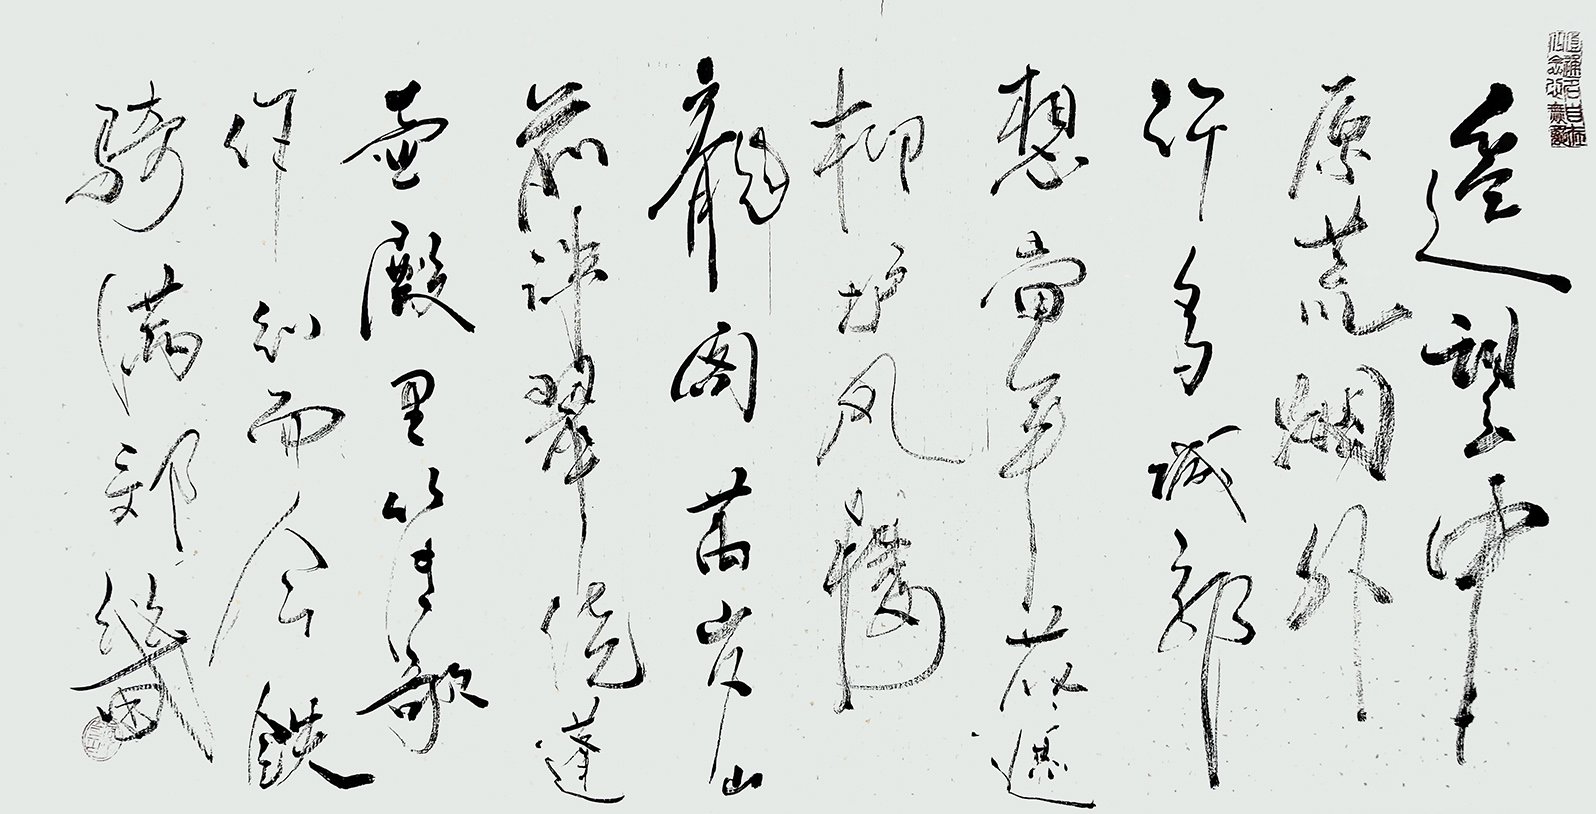 遥望中
原荒烟外
许多城郭
想當年花遮
柳护凤樓
龍阁萬岁山
前珠翠绕蓬
壺殿里笙歌
作到而今鉄
骑满郊畿